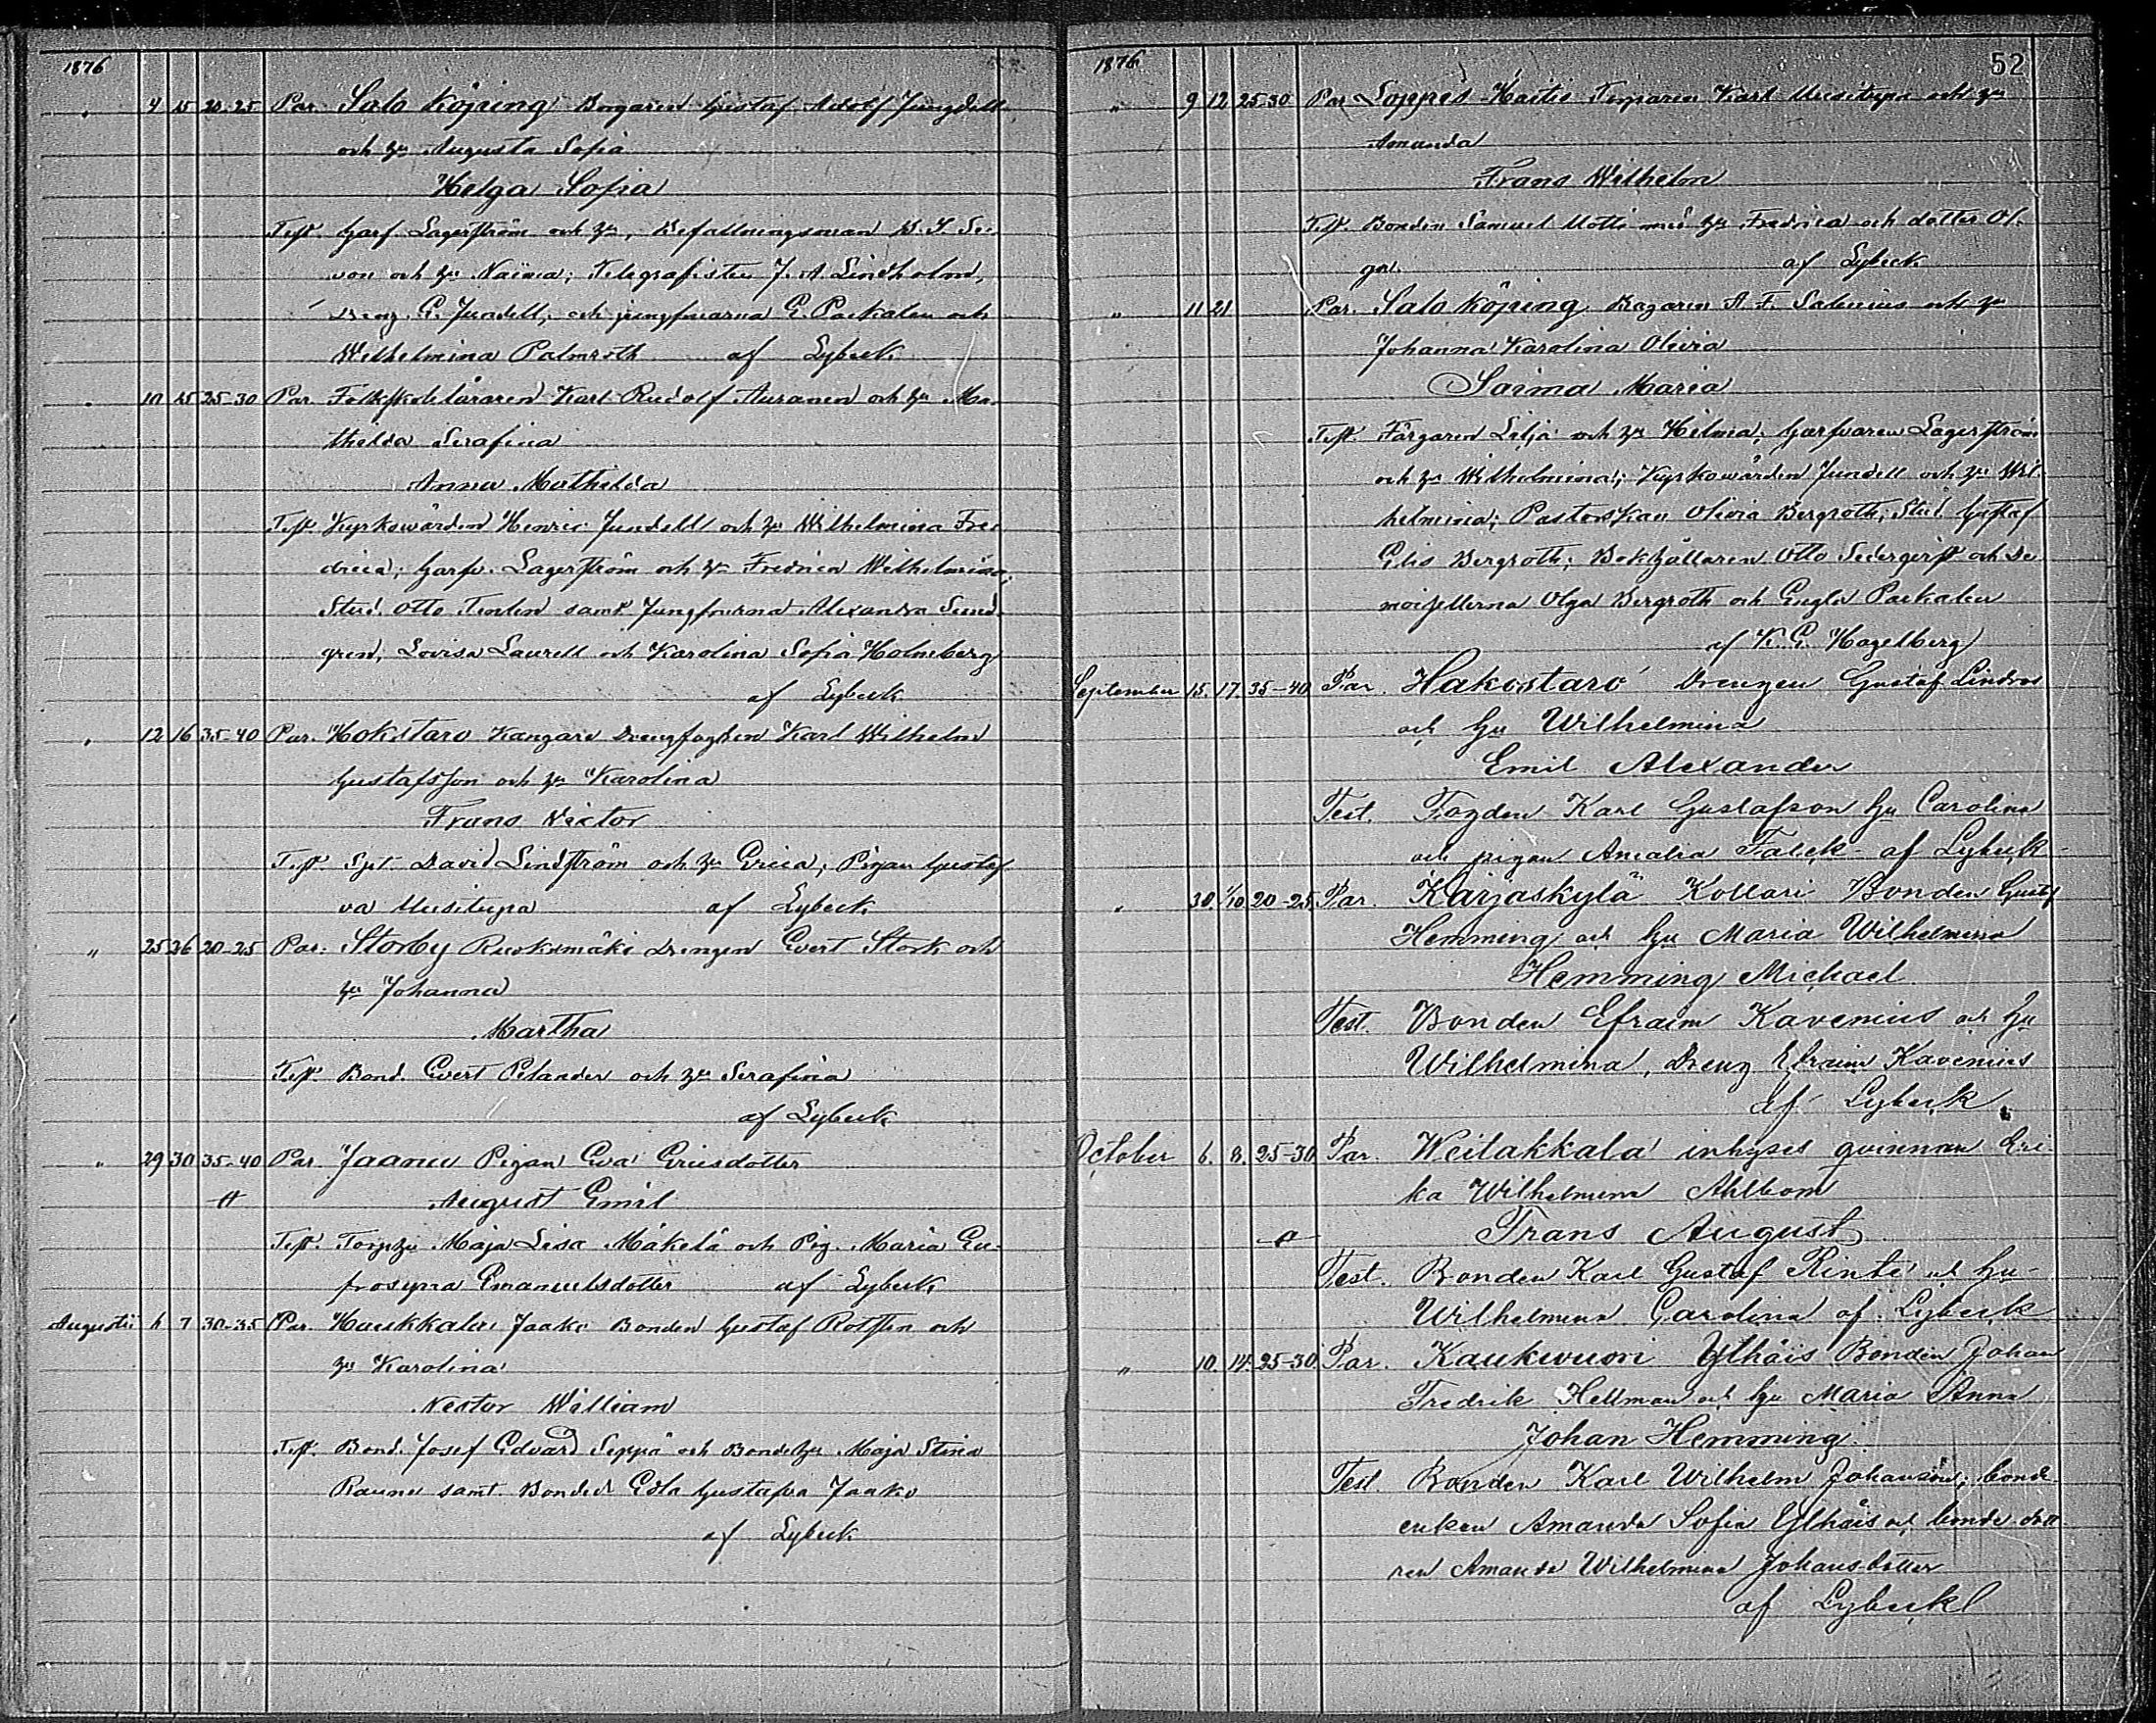 1876
" 4 15 20-25 Par. Salo Köping Borgaren Gustaf Adolf Ljungdell
och hu Augusta Sofia
Helga Sofia
Test. Garf. Lagerström och hu, Befallningsman
och hu Naima; Telegrafisten J. A. Lindholm,
Dreng. G. Jundell, och jungfruarna E. Packalen och
Wilhelmina Palmroth af Lybeck
" 10 25 25-30 Par. Folkskoleläraren Karl Rudolf Auranen och hu Ma-
thilda Serafina
Anna Mathilda
Test. Kyrkowärden Henric Jundell och hu Wilhelmina Fre-
drica; Garfv. Lagerström och hu Fredrica Wilhelmina,
Stud. Otto samt Jungfrurna Alexandra Sund-
gren, Lovisa Laurell och Karolina Sofia Holmberg
af Lybeck
" 12 16 35-40 Par. Hakostaro Kangare Drengfogden Karl Wilhelm
Gustafsson och hu Karolina
Frans Victor
Test. Sjt. David Lindström och hu Erica, Pigan Gustaf-
va Uusitupa af Lybeck
" 25 26 20-25 Par. Storby Ruoksmäki Drengen Evert Stork och
hu Johanna
Martha
Test. Bond. Evert Pelander och hu Serafina
af Lybeck
" 29 30 35-40 Par. Jaanu Pigan Eva Ericsdotter
August Emil
Test. Torp.hu Maja Lisa Mäkelä och Pig. Maria Eu-
frosyna Emanuelsdotter af Lybeck
Augusti 6 7 30-35 Par. Haukkala Jaako Bonden Gustaf och
hu Karolina
Nestor William
Test. Bond. Josef Edvard Seppä och Bondehu Maja Stina
Raunu samt Bonded. Edla Gustafva Jaako
af Lybeck
1876 52
" 9 12 25-30 Par. Loppes Kaitis Torparen Karl Uusitupa och hu
Amanda
Frans Wilhelm
Test. Bonden Samuel Motti med hu Fredrica och dotter Ol-
ga. af Lybeck
" 11 21 Par. Salo Köping Bagaren A. F. Salenius och hu
Johanna Karolina Olivia
Saima Maria
Test. Färgaren Lilja och hu Hilma; Garfvaren Lagerström
och hu Wilhelmina; Kyrkowärden Jundell och hu Wil-
helmina; Pastorskan Olivia Bergroth; Stud. Gustaf
Elis Bergroth; Bokhållaren Otto Sederqvist och De-
moisellerna Olga Bergroth och Engla Packalen
af K. G. Hagelberg
September 15. 17. 35-40 Par. Hakostaro Drengen Gustaf Lindroos
och hu Wilhelmina
Emil Alexander
Test. Fogden Karl Gustafson hu Carolina
och pigan Amalia Falck - af Lybeck -
" 30. 1/10 20-25. Par. Karjaskylä Kollari Bonden Gustaf
Hemming och hu Maria Wilhelmina
Hemming Michael
Test. Bonden Efraim Kavenius och hu
Wilhelmina, Dreng Efraim Kavenius
af Lybeck.
October 6. 8. 25-30 Par. Weitakkala inhyses qvinnan Eri-
ka Wilhelmina Ahlbom
Frans August
Test. Bonden Karl Gustaf Rinte och hu
Wilhelmina Carolina af Lybeck
" 10. 14. 25-30. Par. Kaukwuori Ylhäis Bonden Johan
Fredrik Hellman och hu Maria Anna
Johan Hemming.
Test. Bonden Karl Wilhelm Johansson; bonde
enkan Amanda Sofia Ylhäis och bonde dott
ren Amanda Wilhelmina Johansdotter
af Lybeck